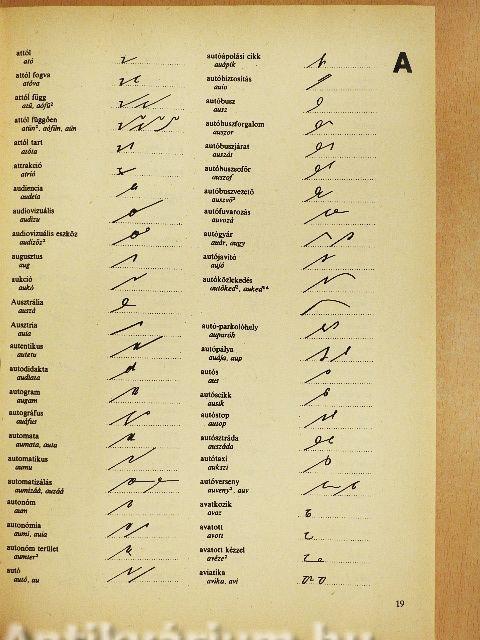 attól
ató
attól fogva
atóva
attól függ
atű, aófü²
attól függően
atün², aófün, aün
attól tart
atóta
attrakció
atrió
audiencia
audeia
audiovizuális
audizu
audiovizuális eszköz
audizöz²
augusztus
aug
aukció
aukó
Ausztrália
auszá
Ausztria
auia
autentikus
autetu
autodidakta
audiata
autogram
augam
autográfus
audfus
automata
aumata, auta
automatikus
aumu
automatizálás
aumizáá, auzáá
autonóm
auan
autonómia
aumi, auia
autonóm terület
aumter²
autó
autó, au
autóápolási cikk
auápik
autóbiztosítás
auio
autóbusz
ausz
autóbuszforgalom
auszor
autóbuszjárat
auszát
autóbuszsofőr
auszof
autóbuszvezető
auszvő²
autófuvarozás
auvozá
autógyár
auár, augy
autójavító
aujó
autóközlekedés
autó-parkolóhely
auparóh
autópálya
auája, aup
autós
aus
autóscikk
ausik
autóstop
autop
autósztráda
auszáda
autótaxi
aukszi
autóverseny
auveny², auv
avatkozik
avoz
avatott
avott
avatott kézzel
avéze²
aviatika
avika, avi
A
19
Antikvárium.hu